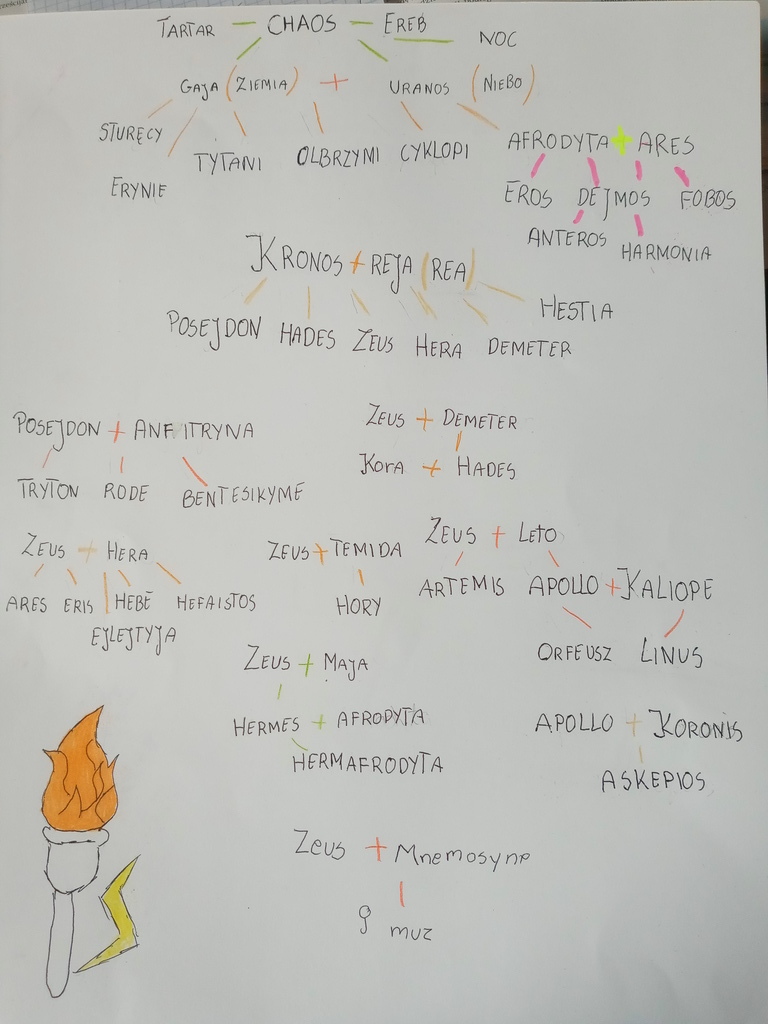 TARTAR — CHAOS — EREB
NOC
GAJA (ZIEMIA) + URANOS (NIEBO)
STURĘCY
ERYNIE
TYTANI
OLBRZYMI
CYKLOPI
AFRODYTA + ARES
EROS DEJMOS FOBOS
ANTEROS HARMONIA
KRONOS + REJA (REA)
POSEJDON HADES ZEUS HERA DEMETER HESTIA
POSEJDON + ANFITRYNA
TRYTON RODE BENTESIKYME
ZEUS + DEMETER
KORA + HADES
ZEUS + HERA
ARES ERIS HEBE HEFAISTOS
EJLEJTYJA
ZEUS + TEMIDA
HORY
ZEUS + LETO
ARTEMIS APOLLO + KALIOPE
ORFEUSZ LINUS
ZEUS + MAJA
HERMES + AFRODYTA
HERMAFRODYTA
APOLLO + KORONIS
ASKEPIOS
Zeus + Mnemosyne
9 muz